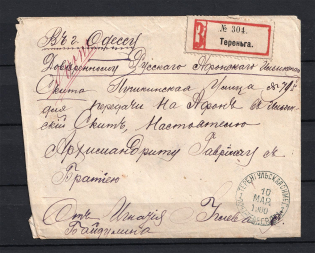 Въ г. Одессу
№ 304.
Тереньга.
Довѣренному Русскаго Афонскаго Ильинскаго
Скита Пушкинская Улица
для передачи на Афонъ въ Ильин
скій Скитъ, Настоятелю
Архимандриту Гавріилу съ
Братіею
10
МАЯ
Отъ Игнатія
Байдулина